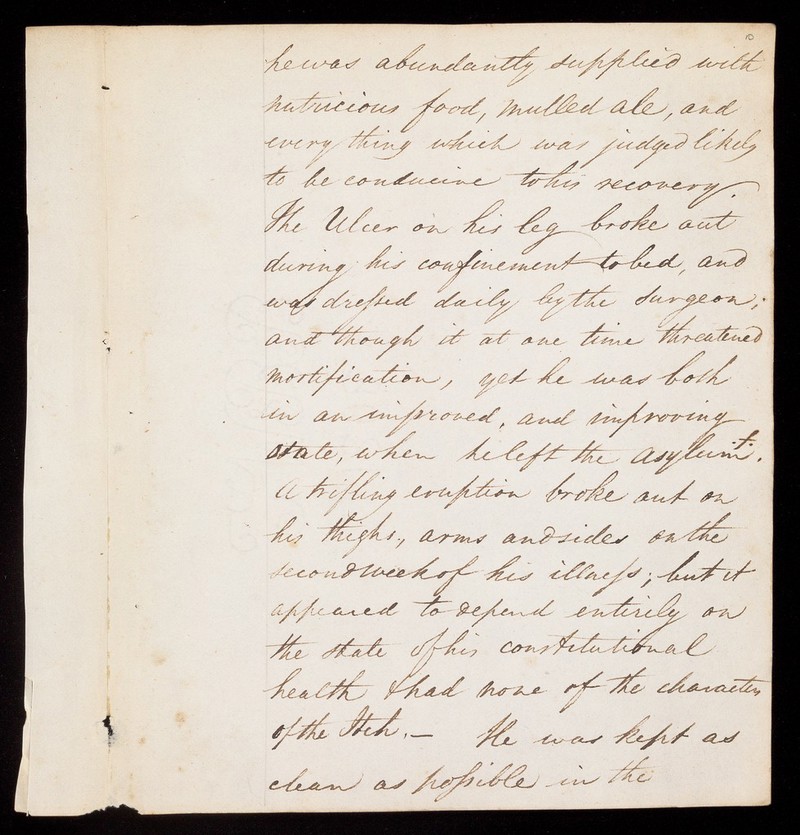 10
he was abundantly supplied with
nutricious food, mulled ale, and
every thing which was judged likely
to be conducive to his recovery.
The Ulcer on his leg broke out
during his confinement to bed, and
was dressed daily by the surgeon;
and though it at one time threatened
mortification, yet he was both
in an improved, and improving
state, when he left the asylum+.
A trifling eruption broke out on
his thighs, arms and sides on the
second week of his illness; but it
appeared to depend entirely on
the state of his constitutional
health & had none of the character
of the Itch.— He was kept as
clean as possible in the